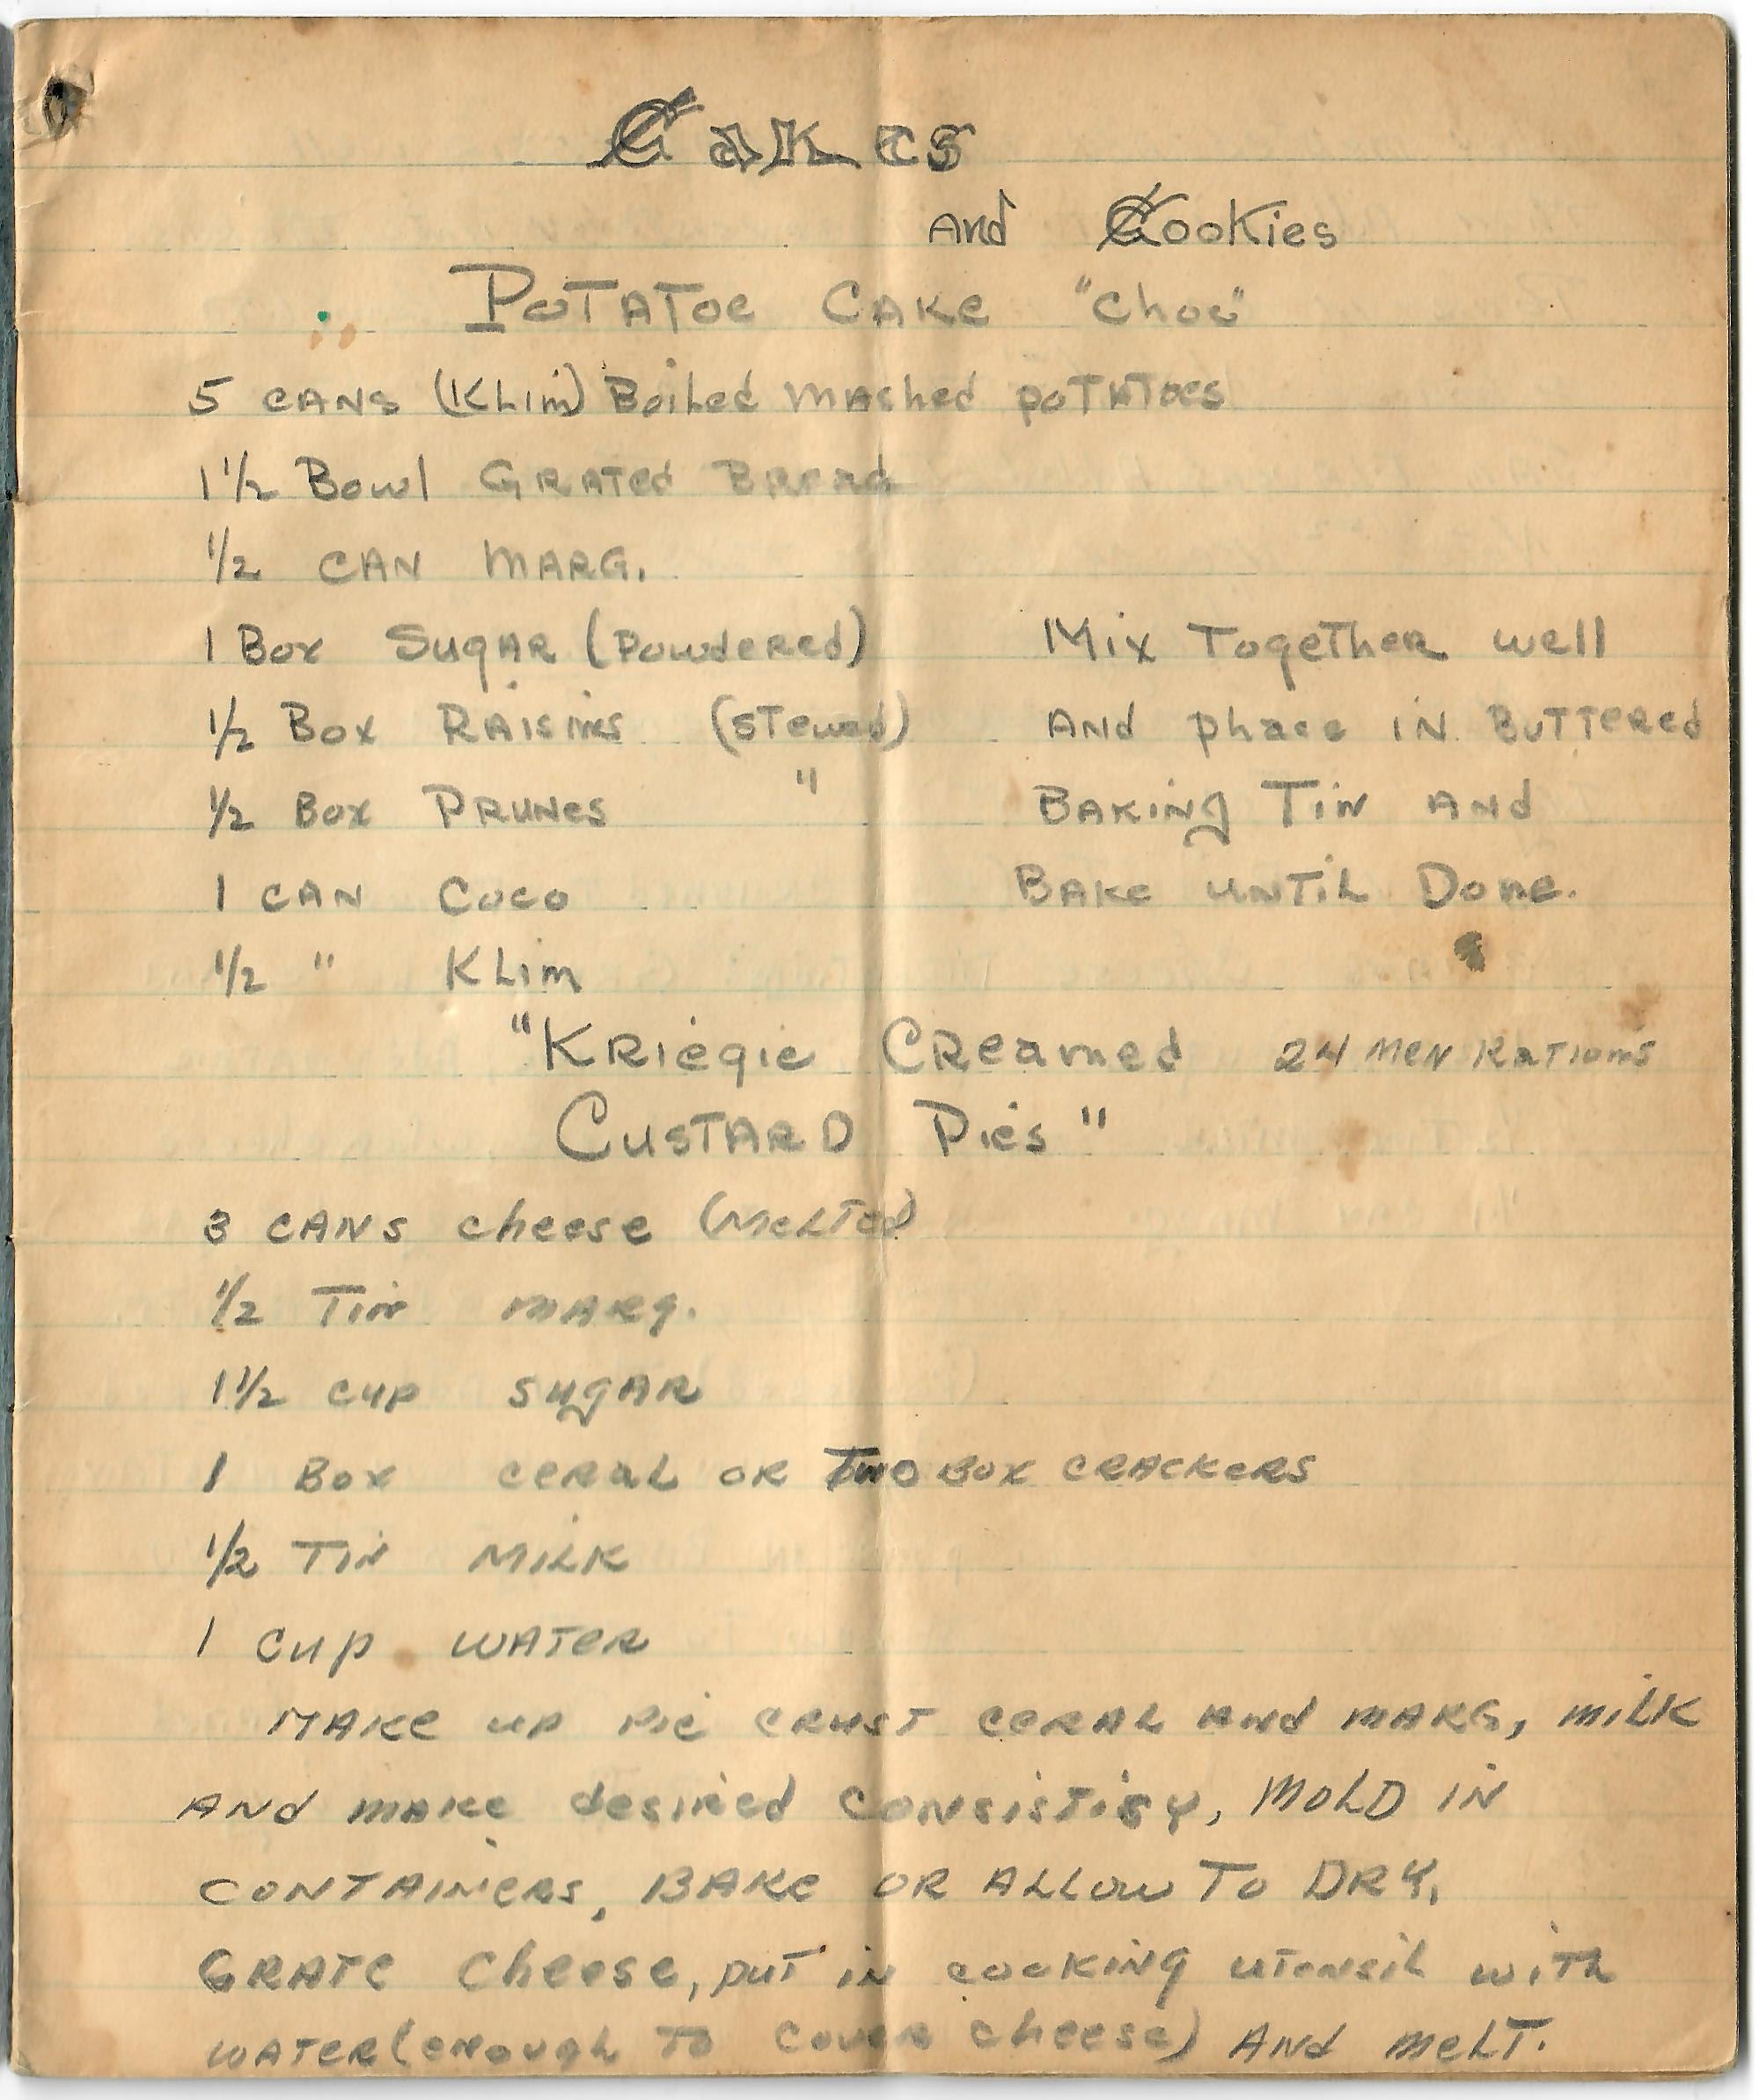 Cakes
And Cookies
Potatoe Cake "Choc"
5 cans (Klim) Boiled mashed potatoes
1 1/2 Bowl Grated Bread
1/2 can marg.
1 Box Sugar (Powdered)
1/2 Box Raisins (stewed)
1/2 Box Prunes "
1 can Coco
1/2 " Klim
Mix Together well
And place in Buttered
Baking Tin and
Bake until Done.
"Kriegie Creamed 24 men Rations
Custard Pies"
3 cans cheese (melted)
1/2 Tin marg.
1 1/2 cup sugar
1 Box ceral or Two box crackers
1/2 Tin milk
1 cup water
Make up pie crust ceral and marg, milk
and make desired consistisy, mold in
containers, bake or allow to dry.
Grate cheese, put in cooking utensil with
water (enough to cover cheese) and melt.